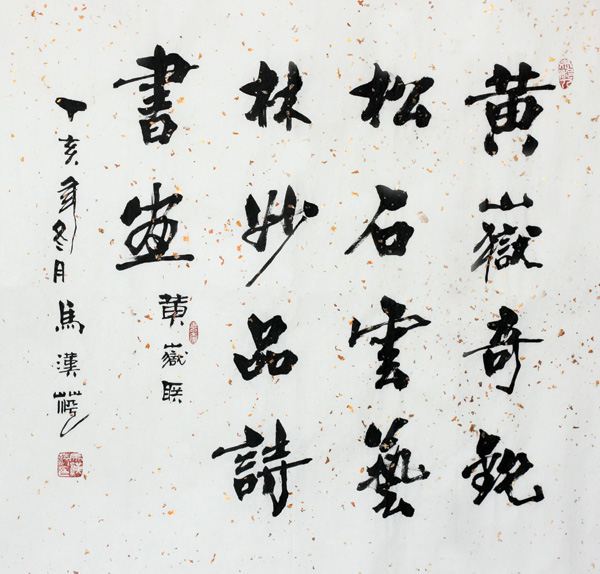 黄嶽奇觀
松石雲藝
林妙品詩
書畫
黄嶽联
丁亥年冬月馬漢